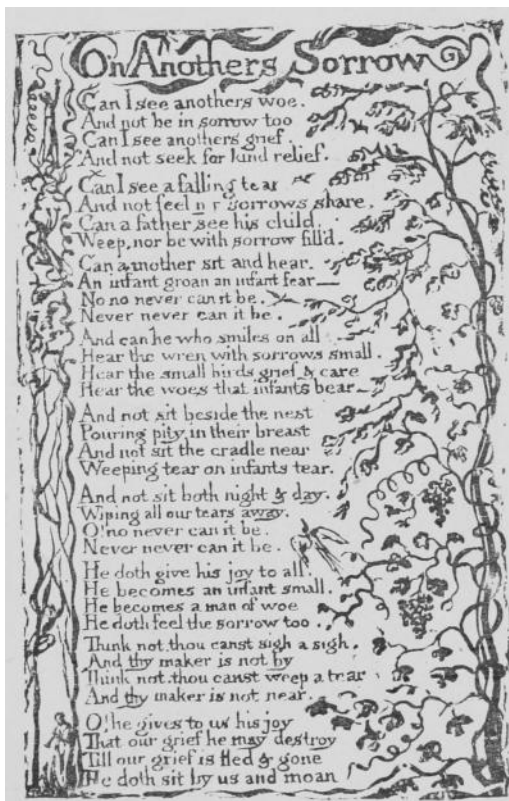 On Anothers Sorrow
Can I see anothers woe.
And not be in sorrow too
Can I see anothers grief
And not seek for kind relief.
Can I see a falling tear
And not feel my sorrows share.
Can a father see his child.
Weep, nor be with sorrow fill'd.
Can a mother sit and hear.
An infant groan an infant fear
No no never can it be.
Never never can it be.
And can he who smiles on all
Hear the wren with sorrows small.
Hear the small birds grief & care
Hear the woes that infants bear
And not sit beside the nest
Pouring pity in their breast
And not sit the cradle near
Weeping tear on infants tear.
And not sit both night & day.
Wiping all our tears away.
O! no never can it be.
Never never can it be.
He doth give his joy to all.
He becomes an infant small.
He becomes a man of woe
He doth feel the sorrow too.
Think not. thou canst sigh a sigh.
And thy maker is not by
Think not. thou canst weep a tear
And thy maker is not near.
O! he gives to us his joy
That our grief he may destroy
Till our grief is fled & gone
He doth sit by us and moan